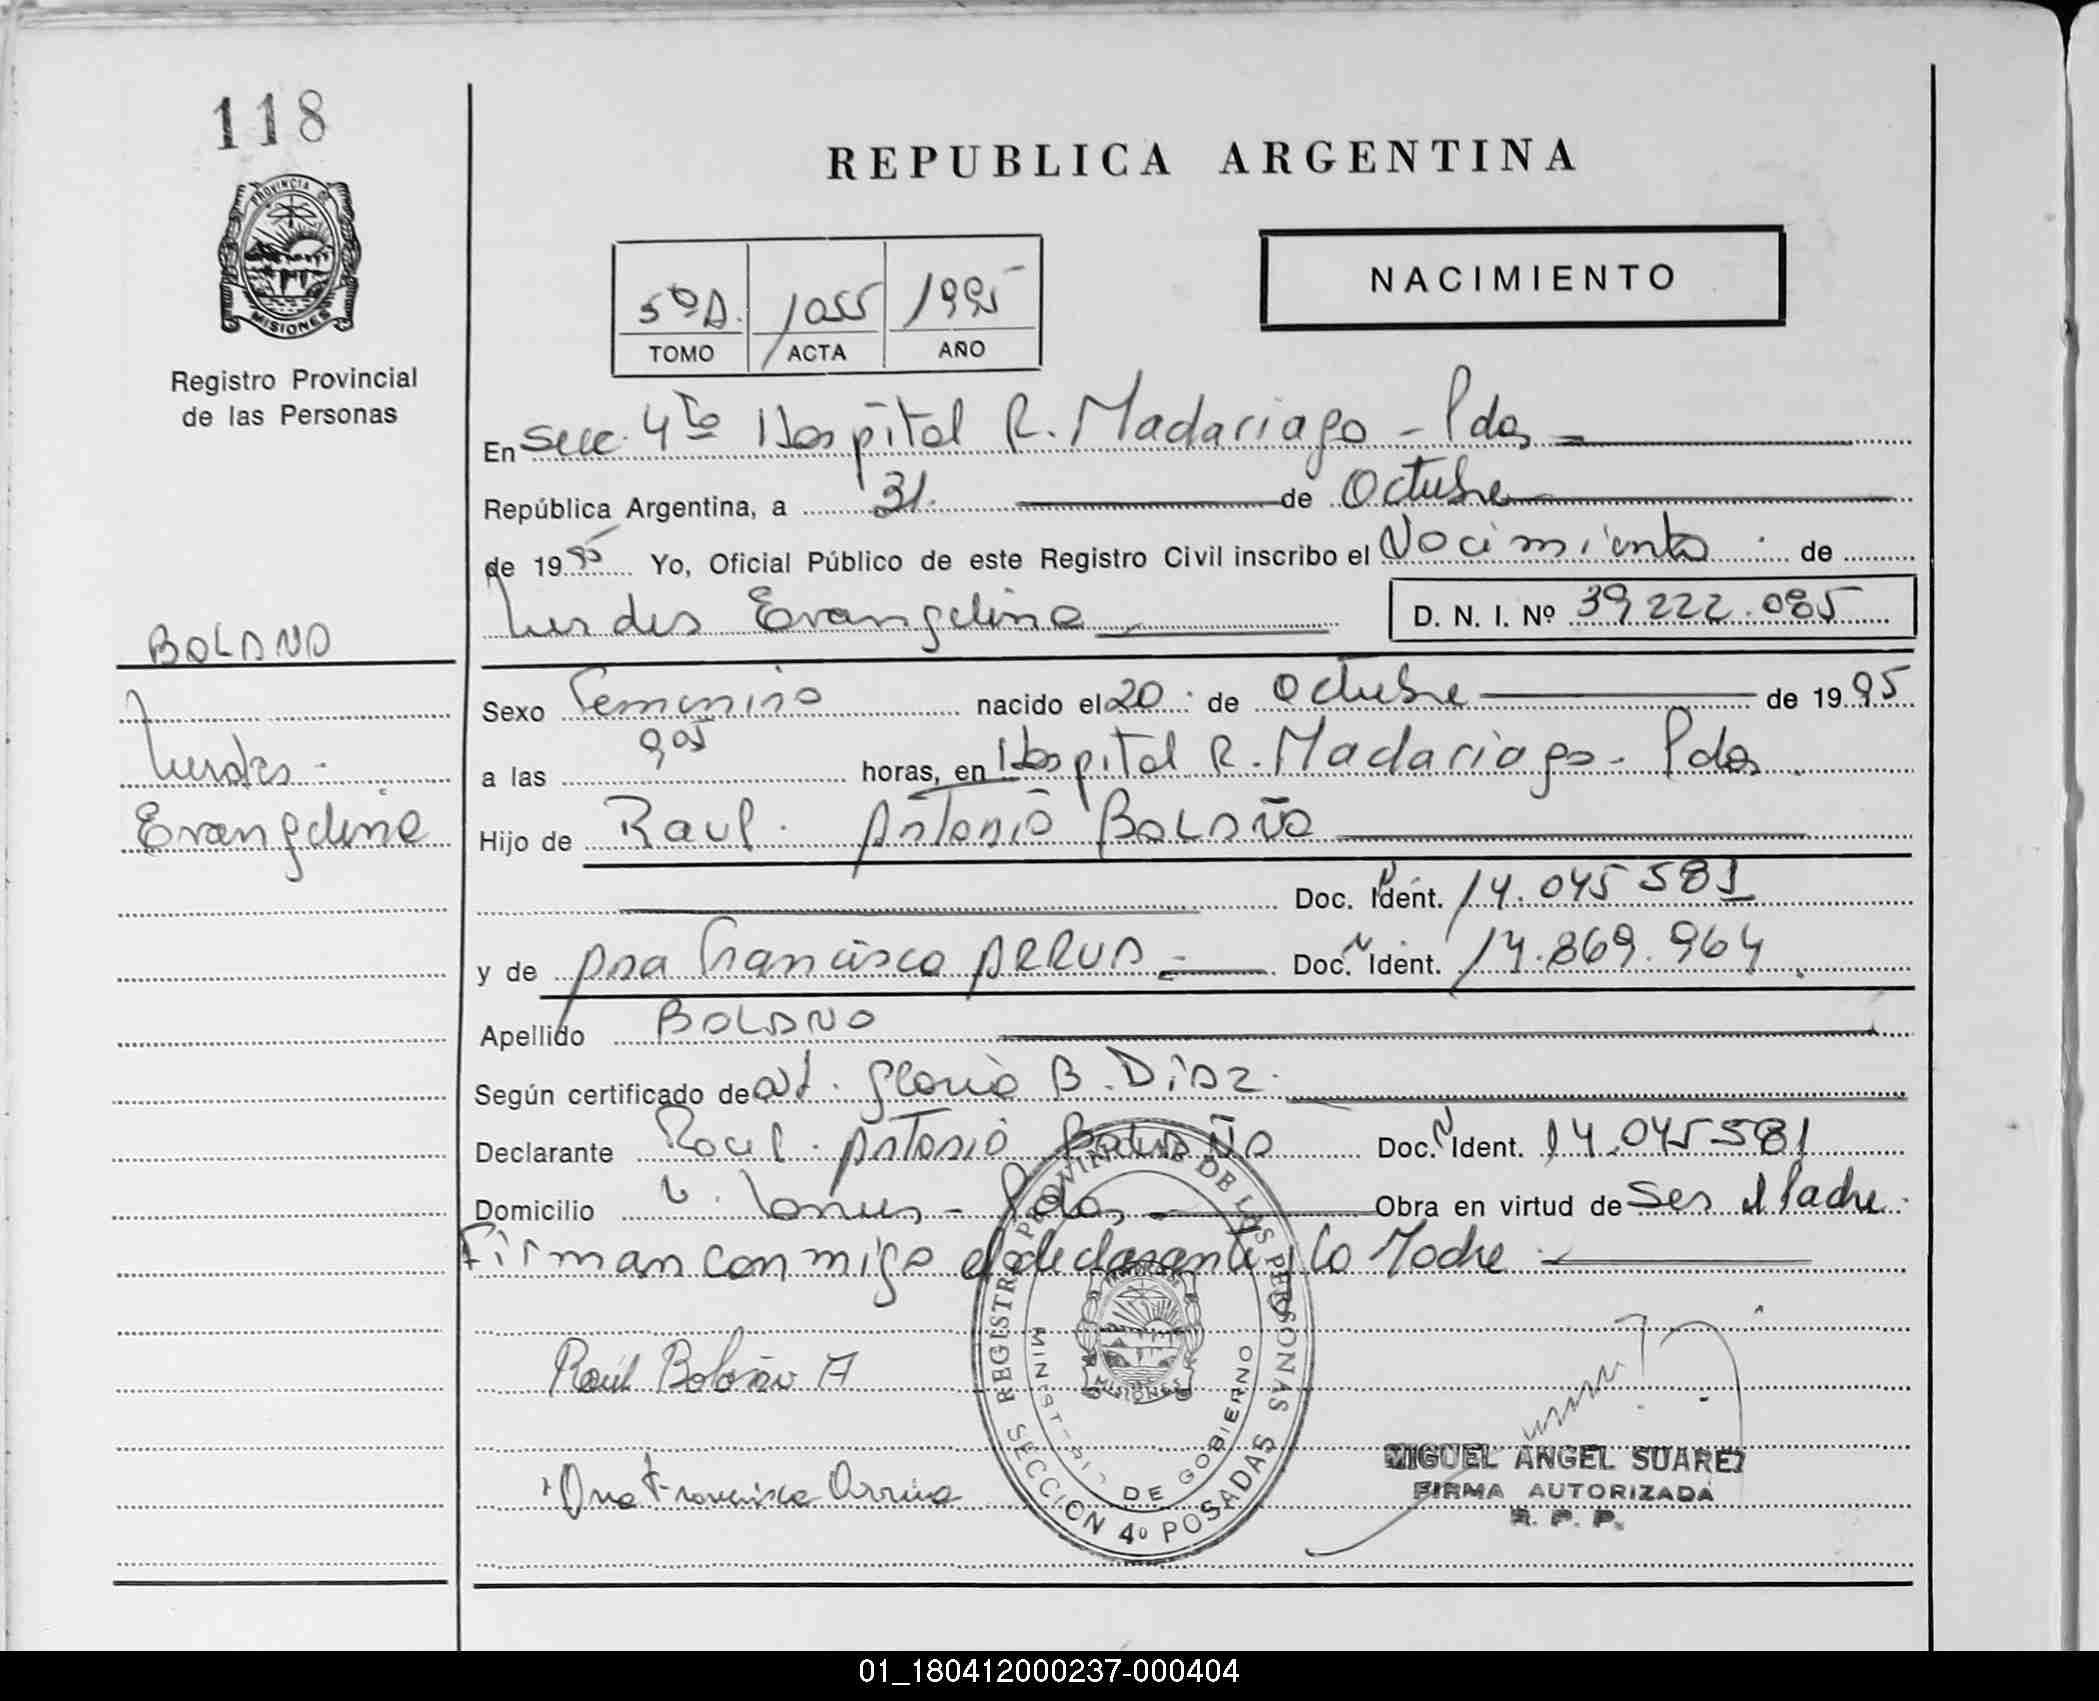 118
PROVINCIA DE
MISIONES
Registro Provincial
de las Personas
REPUBLICA ARGENTINA
NACIMIENTO
5º A. 1055 1995
TOMO ACTA AÑO
En Secc. 4ta Hospital R. Madariaga - Pdas
República Argentina, a 31. de Octubre
de 1995 Yo, Oficial Público de este Registro Civil inscribo el Nacimiento de
Lurdes Evangelina D. N. I. Nº 39 222.085
BOLANO
Lurdes
Evangelina
Sexo Femenino nacido el 20 de Octubre de 1995
a las 9 05 horas, en Hospital R. Madariaga - Pdas
Hijo de Raul Antonio Bolaño
Doc. Ident. 14.045 581
y de Ana Francisca ARRUA Doc. Ident. 14.869.964
Apellido BOLANO
Según certificado de Gloria B. Diaz
Declarante Raul Antonio Bolaño Doc. Ident. 14.045 581
Domicilio Pdas Obra en virtud de Ser el Padre
Firman conmigo el declarante y la Madre
REGISTRO PROVINCIAL DE LAS PERSONAS
MINISTERIO DE GOBIERNO
MISIONES
SECCION 4º POSADAS
Raúl Bolaño A
Ana Francisca Arrua
MIGUEL ANGEL SUAREZ
FIRMA AUTORIZADA
R. P. P.
01_180412000237-000404